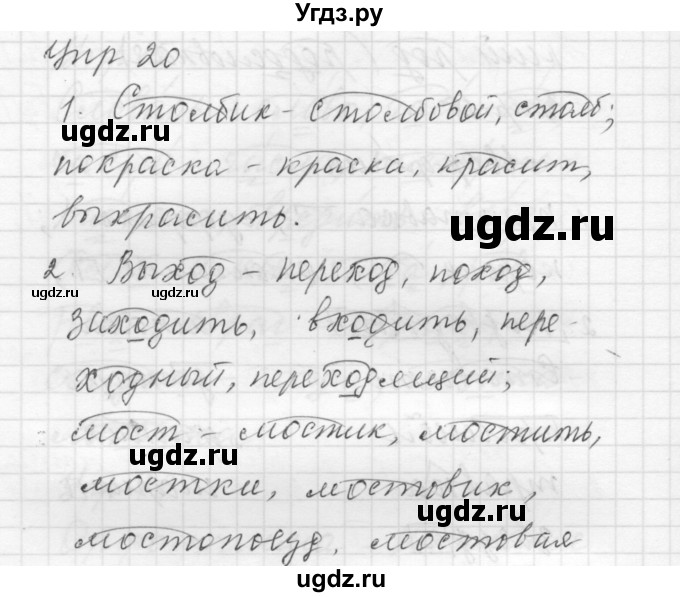 Угдз.ру
Упр 20
1. Столбик – столбовой, столб;
ugdz.ru
покраска – краска, красит,
выкрасить.
ugdz.ru
2. Выход – переход, поход,
ugdz.ru
ugdz.ru
заходить, входить, пере-
ходный, переходящий;
мост – мостик, мостить,
ugdz.ru
мостки, мостовик,
ugdz.ru
мостопоезд, мостовая
ugdz.ru